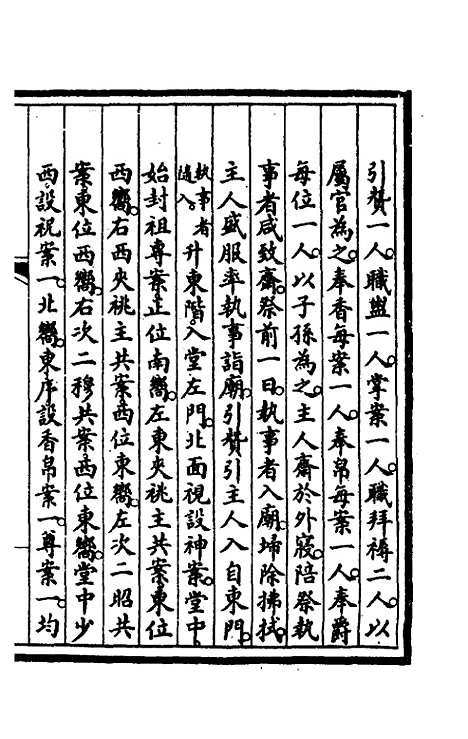 引贊一人職盥一人掌案一人職拜褥二人以
屬官為之奉香每案一人奉帛每案一人奉爵
每位一人以子孫為之主人齋於外寢陪祭執
事者咸致齋祭前一日執事者入廟埽除拂拭
主人盛服率執事詣廟引贊引主人入自東門
執事者隨入升東階入堂左門北面視設神案堂中
始封祖專案正位南嚮左東夾祧主共案東位
西嚮右西夾祧主共案西位東嚮左次二昭共
案東位西嚮右次二穆共案西位東嚮堂中少
西設祝案一北嚮東序設香帛案一尊案一均